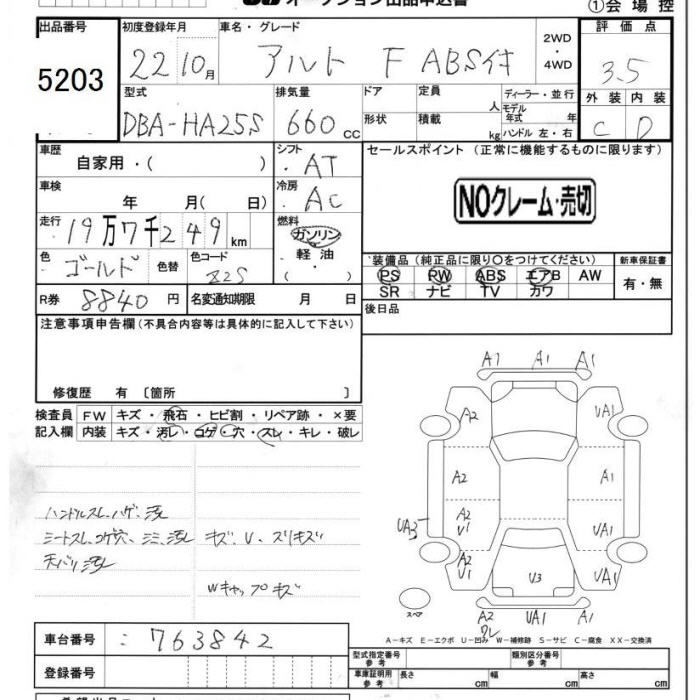 オークション出品申込書
①会場控
出品番号 初度登録年月 車名・グレード 2WD・4WD 評価点
5203 22 10月 アルト F ABS付 3.5
型式 排気量 ドア 定員 人 ディーラー・並行 外装 内装
DBA-HA25S 660cc 形状 積載 kg モデル年式 年 ハンドル 左・右 C D
車歴 自家用・( ) シフト AT セールスポイント (正常に機能するものに限ります)
車検 年 月( 日) 冷房 AC NOクレーム・売切
走行 19万7千249km 燃料 ガソリン 軽油 ( )
色 ゴールド 色替 色コード Z2S 装備品 (純正品に限り○をつけてください) 新車保証書
PS PW ABS エアB AW 有・無
SR ナビ TV カワ
R券 8840円 名変通知期限 月 日 後日品
注意事項申告欄 (不具合内容等は具体的に記入して下さい)
修復歴 有 〔箇所 〕
検査員 FW キズ・飛石・ヒビ割・リペア跡・×要
記入欄 内装 キズ・汚レ・コゲ・穴・スレ・キレ・破レ
ハンドルスレ、ハゲ、汚
シートスレ、コゲ穴、シミ、汚 キズ、U、スリキズ
天バリ汚
Wキャップキズ
A1 A1 A1
A2 UA1
A2 A1
UA3 A2 U1 UA1
A2 U1 U3 UA1
スペア A2 ワレ UA1 A1
A-キズ E-エクボ U-凹み W-補修跡 S-サビ C-腐食 XX-交換済
車台番号 : 763842
型式指定番号 参考 類別区分番号 参考
登録番号 車庫証明用 参考 長さ cm 幅 cm 高さ cm